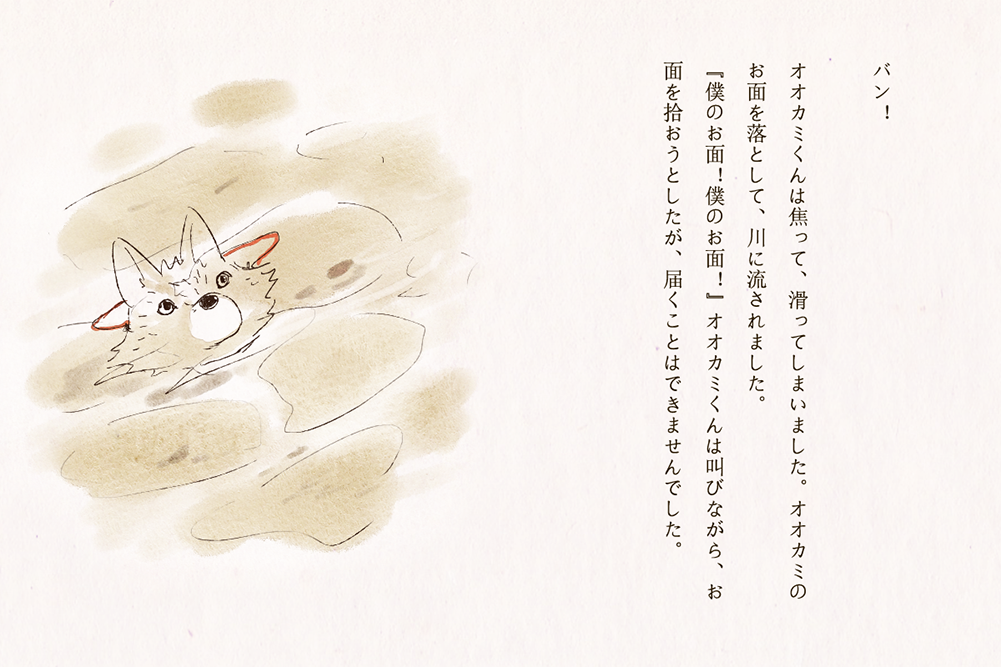 バン！
オオカミくんは焦って、滑ってしまいました。オオカミの
お面を落として、川に流されました。
『僕のお面！僕のお面！』オオカミくんは叫びながら、お
面を拾おうとしたが、届くことはできませんでした。